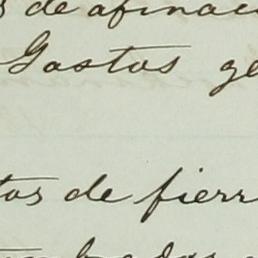 s de afinaci
Gastos ge
tos de fierr